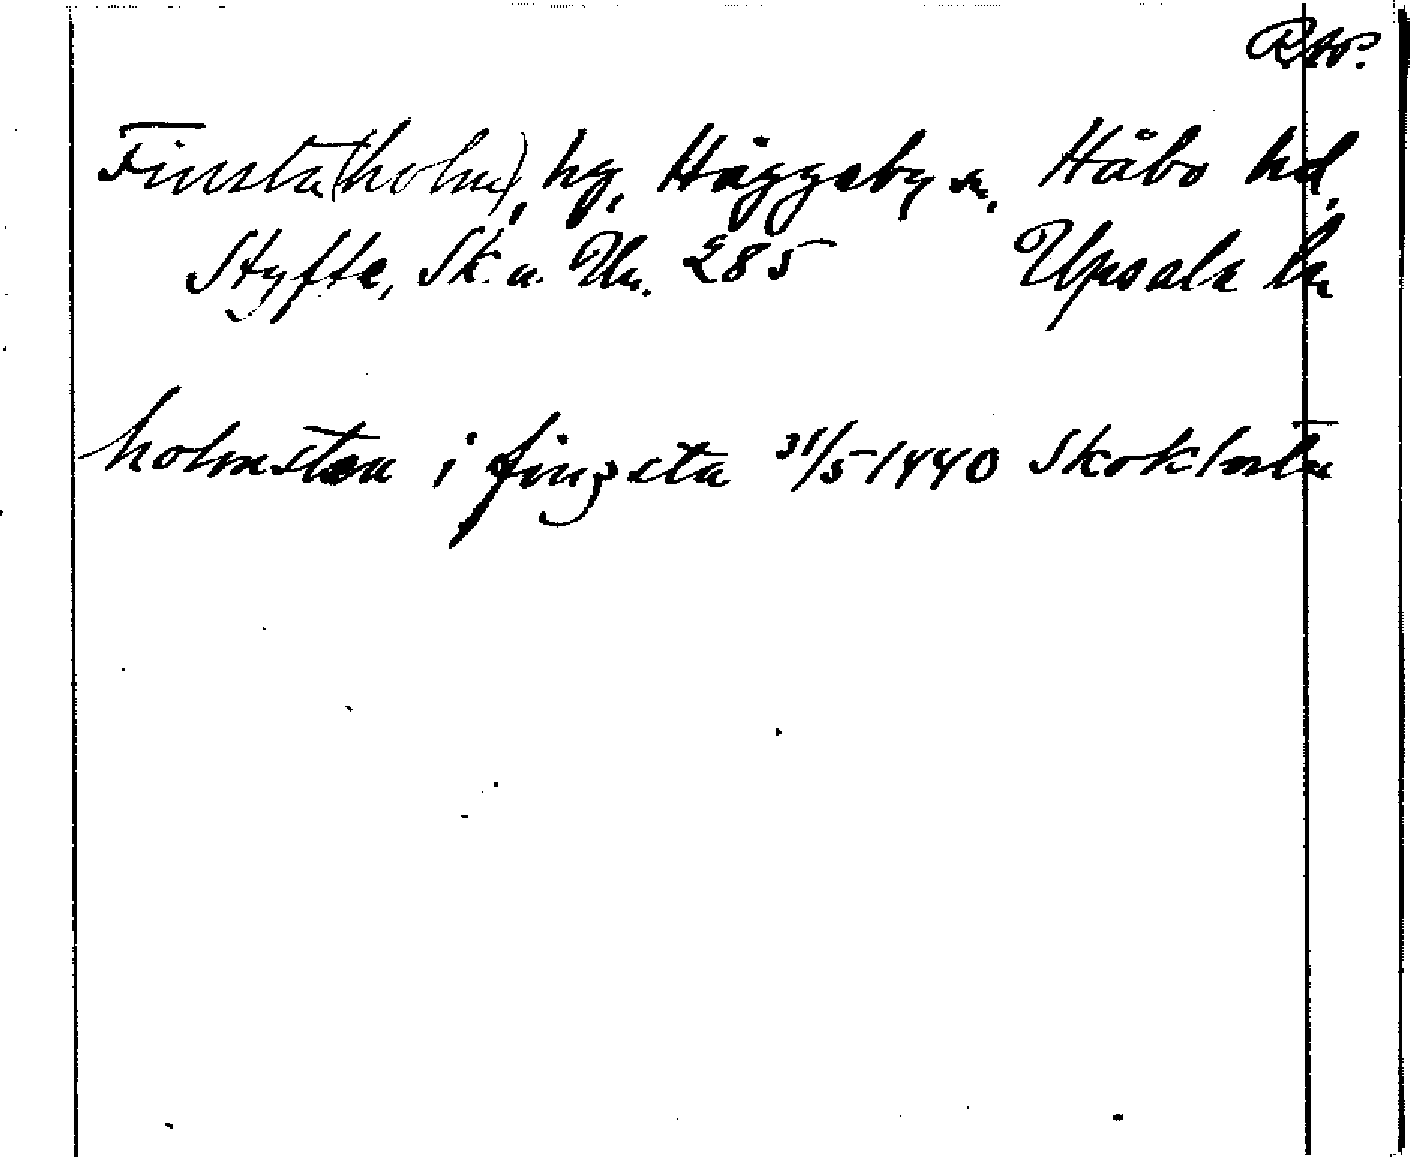 Finsta(holm), hg, Häggeby sn, Håbo hd,
Styffe, Sk. u. Un. 285 Upsala län
holmsten i fingsta 31/5 1440 Skokloster